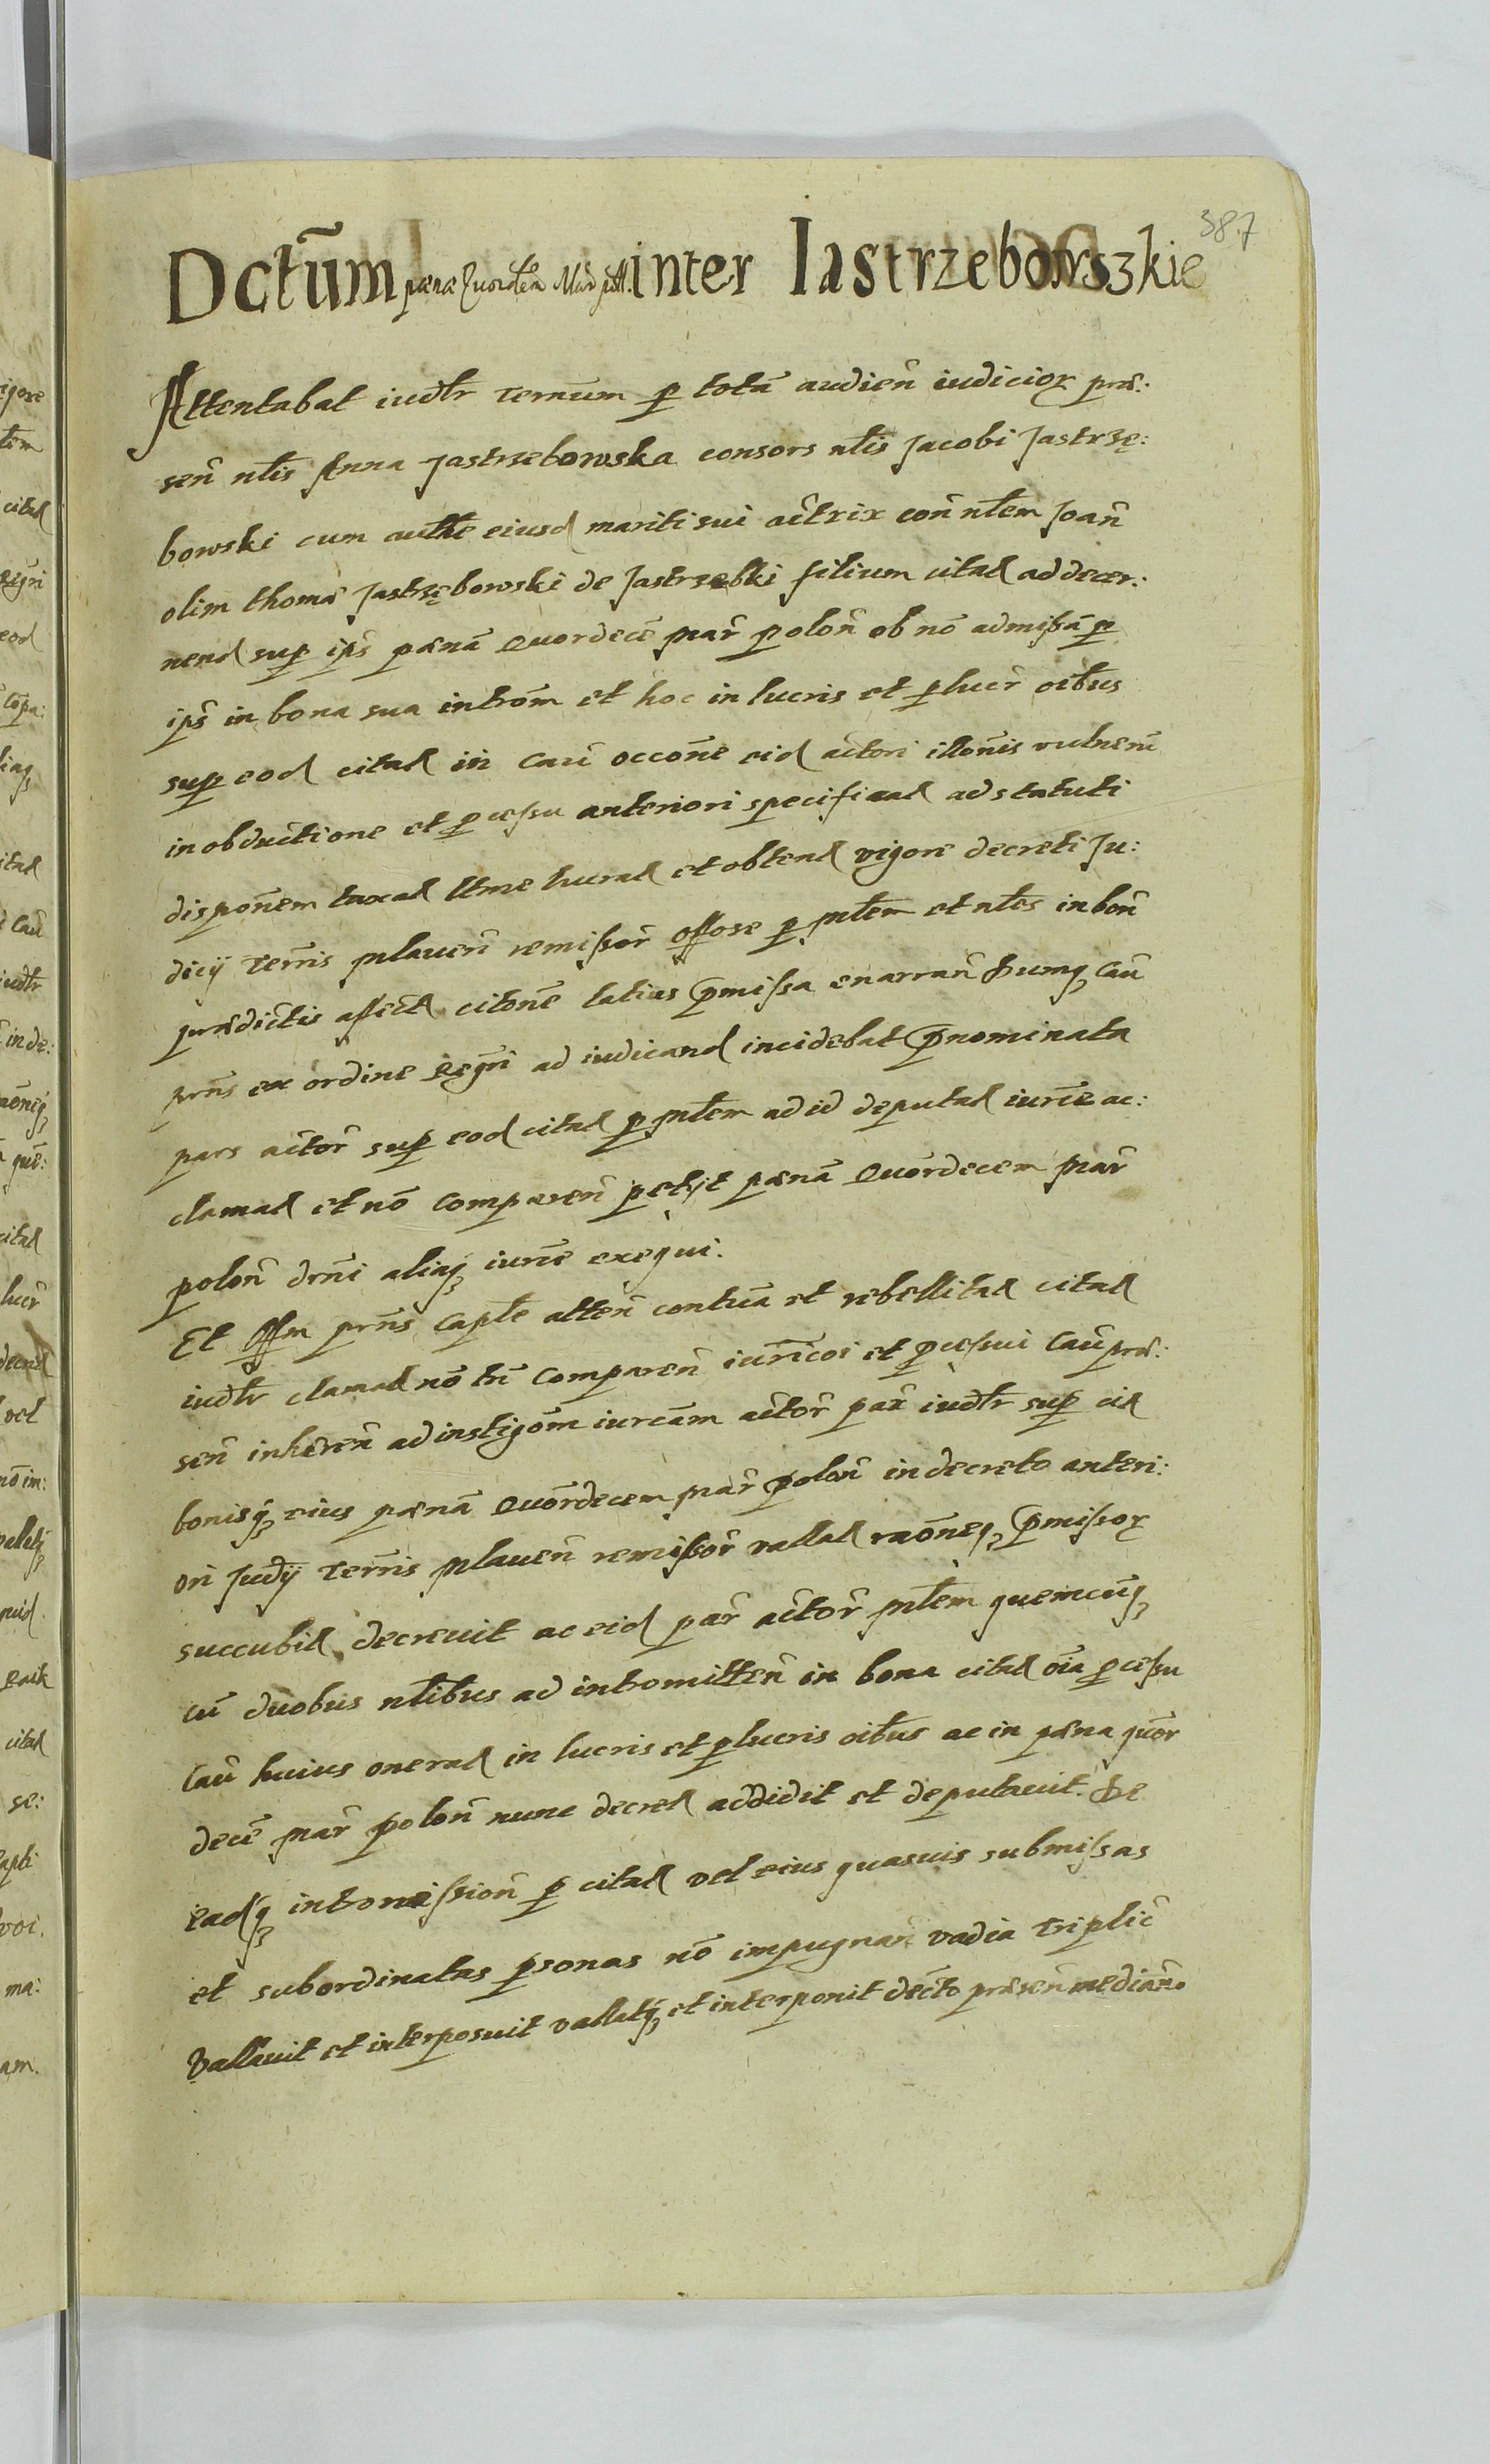 387
Dctũm pœnæ Quordem Mar poll. inter Iastrzebowszkie
Attentabat iudr̃ ternum p totã audien̄ iudicioꝝ præ:
sen̄ nt̃lis Anna Jastrzebowska consors nt̃lis Jacobi Jastrzę:
bowski cum auth̃e eiusd mariti sui actrix con̄ nt̃lem Joan̄
olim thomæ Jastrzębowski de Jastrzebki filium citat̃ ad decer:
nend̃ sup ips̄ pœnã Quordecẽ mar̄ polon̄ ob nõ admissã p
ips̄ in bona sua introm̃ et hoc in lucris et plucr̄ oib̃us
sup eod citat̃ in cau̅ occon̄e eid actori illon̄is vulnerũ
in obductione et pcessu anteriori specificat̃ ad statuti
dispon̄em taxat̃ ltme lucrat̃ et obtent̃ vigore decreti Ju:
dicij terr̄is mlauen̄ remissor̄ p ml̃em et nt̃les in bon̄
prædictis affect̃ citon̄e latius p̄missa enarran̄ Dumq̨ cau̅
prn̄s ex ordine regr̄i ad iudicand̃ incidebat p̄nominata
pars actor̄ sup eod citat̃ p ml̃em ad id deputat̃ iurẽ ac:
clamat̃ et nõ comparen̄ petijt pœnã Quordecem mar̄
polon̄ drñi aliaq̨ iurẽ exequi.
Et prn̄s capt̃le atten̄ contuã et rebellitat̃ citat̃
iudr̃ clamat̃ nõ tñ comparen̄ iuricoi et pcessui cau̅ præ:
sen̄ inhæren̄ ad instigõm iurcãm actor̄ par̄ iudr̃ sup cit̃
bonisq̨ eius pœnã Quordecem mar̄ polon̄ in decreto anteri:
ori Judij terr̄is mlauen̄ remissor̄ vallat̃ raõneq̨ p̄missoꝝ
succubit̃ decrevit ac eid par̄ actor̄ ml̃em quemcũq̨
cũ duobus nt̃libus ad intromitten̄ in bona citat̃ oĩa pcessu
cau̅ huius onerat̃ in lucris et plucris oib̃us ac in pœna quor
decẽ mar̄ polon̄ nunc decret̃ addidit et deputauit. De
eadq̨ intromission̄ p citat̃ vel eius quasvis submissas
et subordinatas psonas nõ impugnan̄ vadia triplic̄
Vallauit et interposuit vallatq̨ et interponit decto præsen̄ median̄.